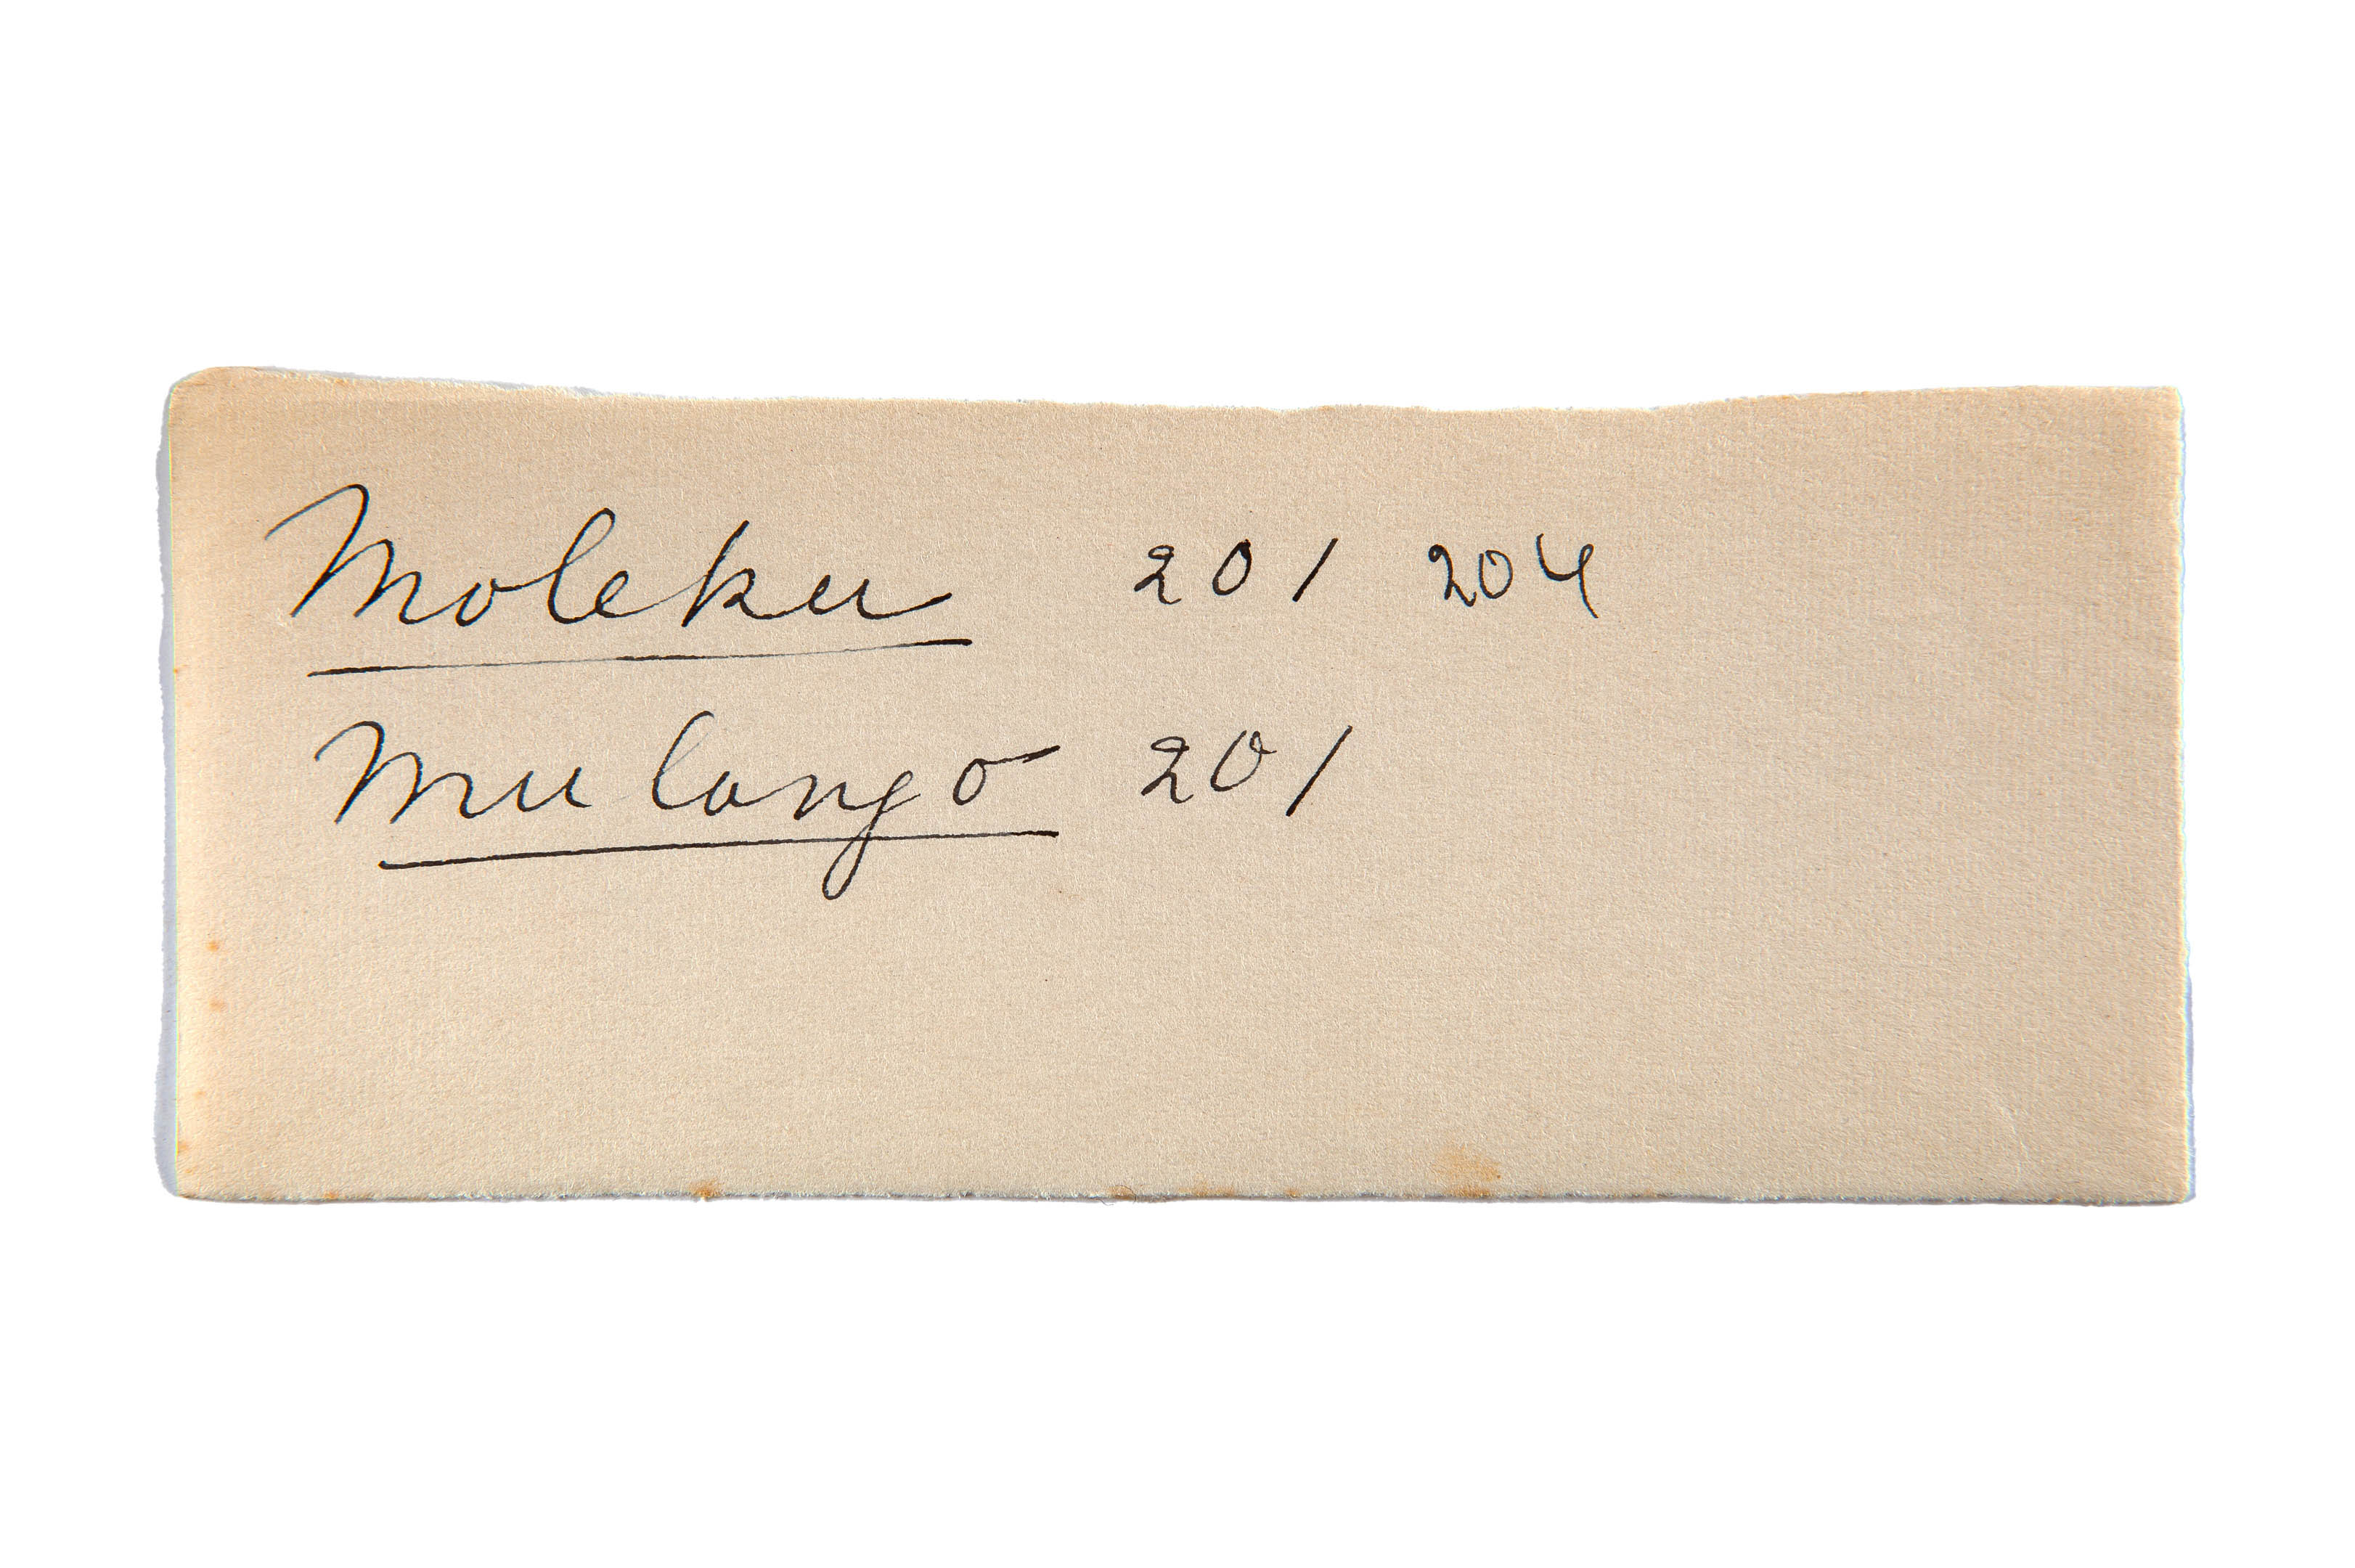 Moleku 201 204
Mulongo 201